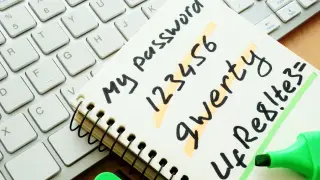 My password
123456
qwerty
4fRe8!te3=